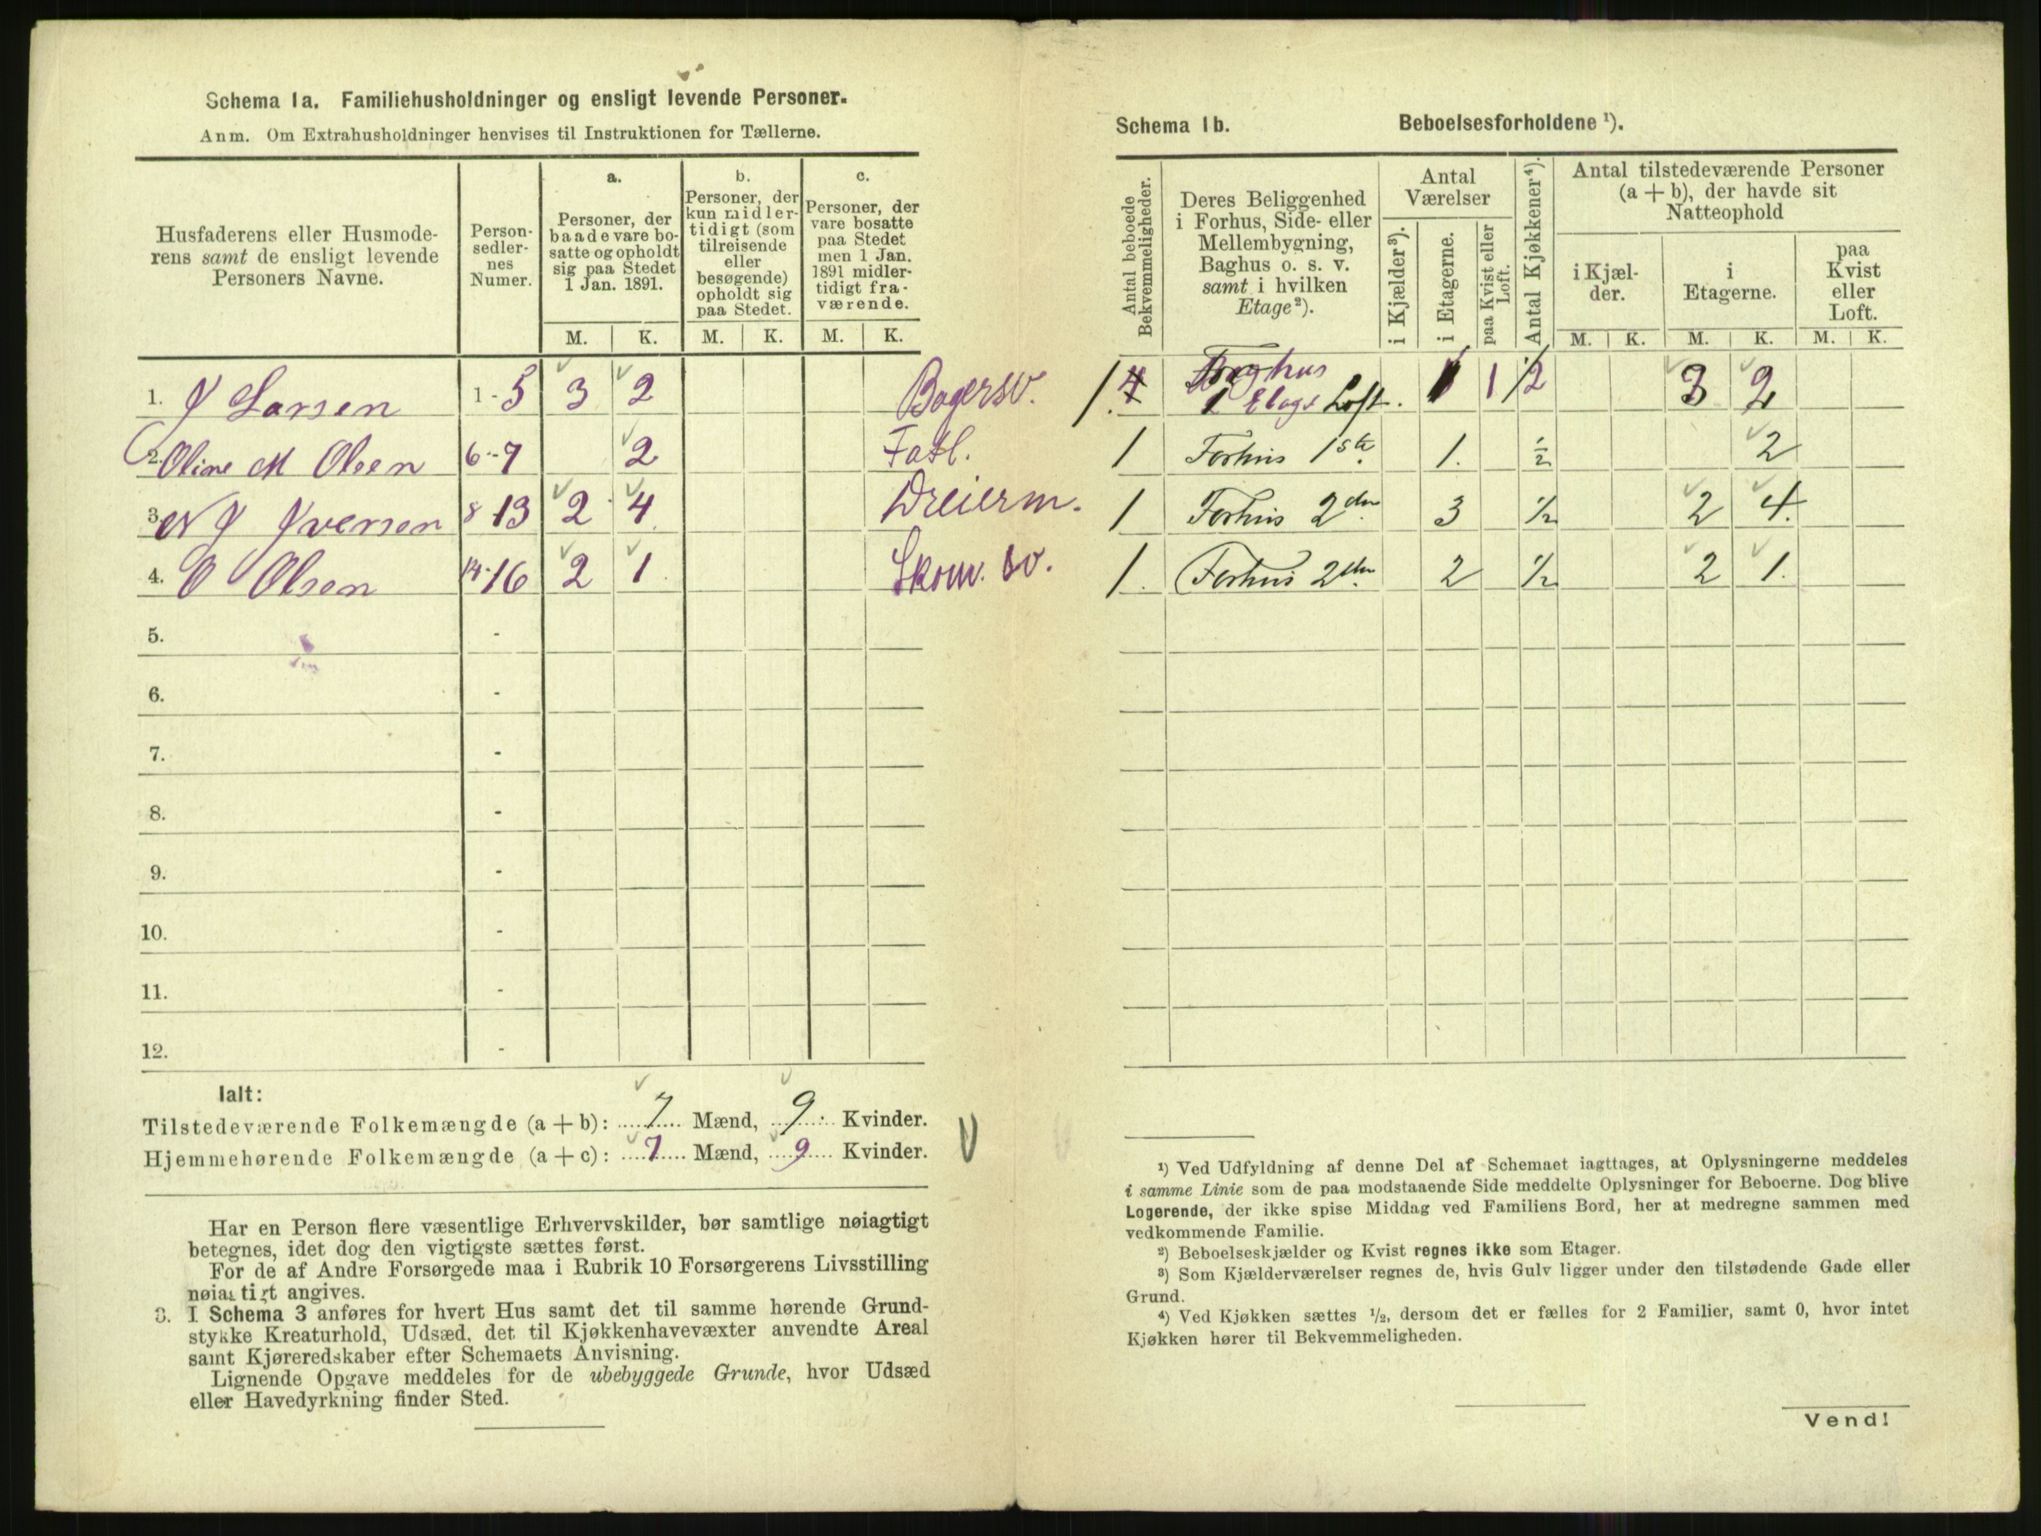 Schema 1a. Familiehusholdninger og ensligt levende Personer.
Anm. Om Extrahusholdninger henvises til Instruktionen for Tællerne.
Husfaderens eller Husmoderens samt de ensligt levende Personers Navne.
Personsedlernes Numer.
a.
Personer, der baade vare bosatte og opholdt sig paa Stedet 1 Jan. 1891.
b.
Personer, der kun midlertidigt (som tilreisende eller besøgende) opholdt sig paa Stedet.
c.
Personer, der vare bosatte paa Stedet men 1 Jan. 1891 midlertidigt fraværende.
M. K. M. K. M. K.
1. J Larsen 1-5 3 2 Bagersv.
2. Oline M Olsen 6-7 2 Fatl.
3. N J Iversen 8-13 2 4 Dreierm.
4. O Olsen 14-16 2 1 Skom. sv.
5. -
6. -
7. -
8. -
9. -
10. -
11. -
12. -
Ialt:
Tilstedeværende Folkemængde (a + b): 7 Mænd, 9 Kvinder.
Hjemmehørende Folkemængde (a + c): 7 Mænd, 9 Kvinder.
Har en Person flere væsentlige Erhvervskilder, bør samtlige nøiagtigt
betegnes, idet dog den vigtigste sættes først.
For de af Andre Forsørgede maa i Rubrik 10 Forsørgerens Livsstilling
nøiagtigt angives.
3. I Schema 3 anføres for hvert Hus samt det til samme hørende Grund-
stykke Kreaturhold, Udsæd, det til Kjøkkenhavevæxter anvendte Areal
samt Kjøreredskaber efter Schemaets Anvisning.
Lignende Opgave meddeles for de ubebyggede Grunde, hvor Udsæd
eller Havedyrkning finder Sted.
Schema 1b. Beboelsesforholdene ¹).
Antal beboede Bekvemmeligheder.
Deres Beliggenhed i Forhus, Side- eller Mellembygning, Baghus o. s. v. samt i hvilken Etage²).
Antal Værelser
i Kjælder³).
i Etagerne.
paa Kvist eller Loft.
Antal Kjøkkener⁴).
Antal tilstedeværende Personer (a + b), der havde sit Natteophold
i Kjælder.
i Etagerne.
paa Kvist eller Loft.
M. K. M. K. M. K.
1. Baghus
1 Etage Loft. 1 1/2 3 2
1 Forhus 1ste 1. ½ 2
1 Forhus 2den 3 ½ 2 4.
1. Forhus 2den 2 ½ 2 1.
¹) Ved Udfyldning af denne Del af Schemaet iagttages, at Oplysningerne meddeles
i samme Linie som de paa modstaaende Side meddelte Oplysninger for Beboerne. Dog blive
Logerende, der ikke spise Middag ved Familiens Bord, her at medregne sammen med
vedkommende Familie.
²) Beboelseskjælder og Kvist regnes ikke som Etager.
³) Som Kjælderværelser regnes de, hvis Gulv ligger under den tilstødende Gade eller
Grund.
⁴) Ved Kjøkken sættes ½, dersom det er fælles for 2 Familier, samt 0, hvor intet
Kjøkken hører til Bekvemmeligheden.
Vend!